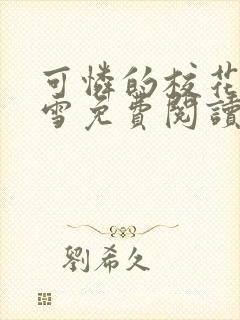 可憐的校花
雪免費閱讀
劉希久